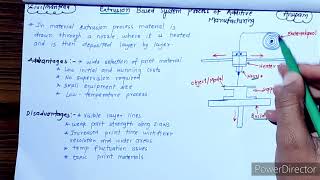 Extrusion Based System Process of Additive
Manufacturing
In material extrusion process material is
drawn through a nozzle where it is heated
and is then deposited layer by layer
Advantages:- wide selection of print material
Low initial and running costs
No supervision required
Small equipment size
Low-temperature process
Disadvantages:- Visible layer lines
weak part strength along Z-axis
Increased print time with finer
resolution and wider areas
temp fluctuation issues
toxic print materials
Heater
Object/Model
PowerDirector